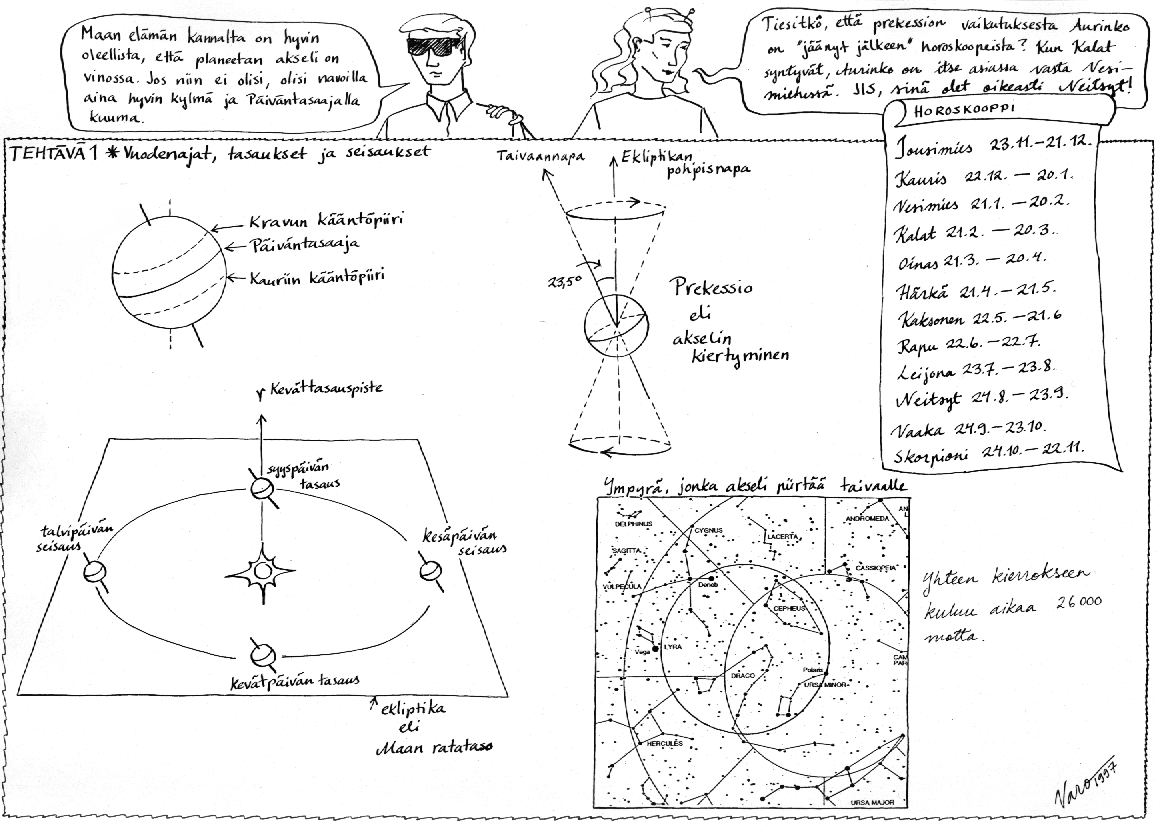 Maan elämän kannalta on hyvin
oleellista, että planeetan akseli on
vinossa. Jos niin ei olisi, olisi navoilla
aina hyvin kylmä ja Päiväntasaajalla
kuuma.
Tiesitkö, että prekession vaikutuksesta Aurinko
on "jäänyt jälkeen" horoskoopeista? Kun Kalat
syntyvät, Aurinko on itse asiassa vasta Vesi-
miehessä. IIS, sinä olet oikeasti Neitsyt!
HOROSKOOPPI
Jousimies 23.11.-21.12.
Kauris 22.12. - 20.1.
Vesimies 21.1. - 20.2.
Kalat 21.2. - 20.3.
Oinas 21.3. - 20.4.
Härkä 21.4. - 21.5.
Kaksonen 22.5. - 21.6
Rapu 22.6. - 22.7.
Leijona 23.7. - 23.8.
Neitsyt 24.8. - 23.9.
Vaaka 24.9. - 23.10.
Skorpioni 24.10. - 22.11.
TEHTÄVÄ 1 * Vuodenajat, tasaukset ja seisaukset
Kravun kääntöpiiri
Päiväntasaaja
Kauriin kääntöpiiri
Taivaannapa
Ekliptikan
pohjoisnapa
23,5°
Prekessio
eli
akselin
kiertyminen
♈ Kevättasauspiste
syyspäivän
tasaus
talvipäivän
seisaus
kesäpäivän
seisaus
kevätpäivän tasaus
ekliptika
eli
Maan ratataso
Ympyrä, jonka akseli piirtää taivaalle
DELPHINUS
CYGNUS
LACERTA
ANDROMEDA
SAGITTA
CASSIOPEIA
VULPECULA
Deneb
CEPHEUS
Vega
LYRA
DRACO
Polaris
URSA MINOR
CAM
PAR
HERCULES
URSA MAJOR
Yhteen kierrokseen
kuluu aikaa 26 000
vuotta.
Varo 1997